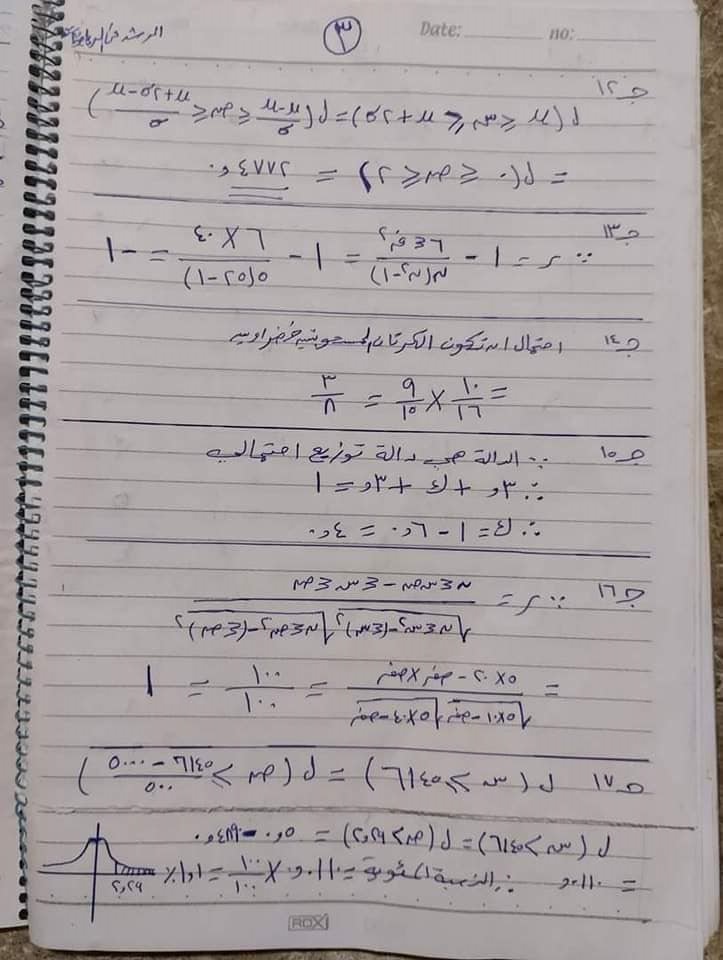 المرشد في الرياضيات
٣
Date: no:
جـ١٢
ل(μ ≤ س ≤ μ + ٢σ) = ل(μ-μ/σ ≤ ص ≤ μ+٢σ-μ/σ)
= ل(٠ ≤ ص ≤ ٢) = ٤٧٧٢و٠
جـ١٣ ∵ ر = ١ - ٦ مجـ ف٢/ن(ن٢-١) = ١ - ٦×٤٠/٥(٢٥-١) = -١
جـ١٤ احتمال ان تكون الكرتان المسحوبتين خضراوين
= ١٠/١٦ × ٩/١٥ = ٣/٨
جـ١٥ ∵ الدالة هي دالة توزيع احتمالي
∴ ٣و + ك + ٣و = ١
∴ ك = ١ - ٦و٠ = ٤و٠
جـ١٦ ∵ ر = ن مجـ س ص - مجـ س مجـ ص/√ن مجـ س٢-(مجـ س)٢ √ن مجـ ص٢-(مجـ ص)٢
= ٥×٢٠ - صفر×صفر/√٥×١٠-صفر √٥×٤٠-صفر = ١٠٠/١٠٠ = ١
جـ١٧ ل(س > ٦١٤٥) = ل(ص > ٦١٤٥ - ٥٠٠٠/٥٠٠)
ل(س > ٦١٤٥) = ل(ص > ٢٫٢٩) = ٥و٠ - ٤٨٩٠و٠
= ٠١١٠و٠ ∴ النسبة المئوية = ٠١١٠و٠ × ١٠٠/١٠٠ = ١٫١٪
٢٫٢٩
ROX